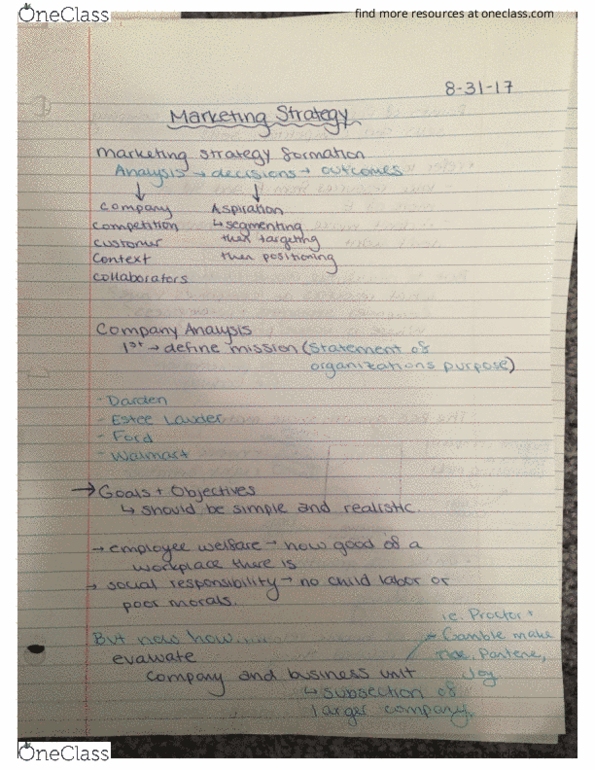 OneClass
find more resources at oneclass.com
8-31-17
Marketing Strategy
marketing strategy formation
Analysis → decisions → outcomes
↓ ↓
Company Aspiration
Competition ↳ segmenting
Customer then targeting
Context then positioning
Collaborators
Company Analysis
1st → define mission (statement of
organizations purpose)
- Darden
- Estee Lauder
- Ford
- Walmart
→ Goals + Objectives
↳ should be simple and realistic.
→ employee welfare → how good of a
workplace there is
→ social responsibility → no child labor or
poor morals.
But now how.....
evaluate
company and business unit
↳ subsection of
larger company.
i.e. Proctor +
Gamble make
Tide, Pantene,
Joy
OneClass